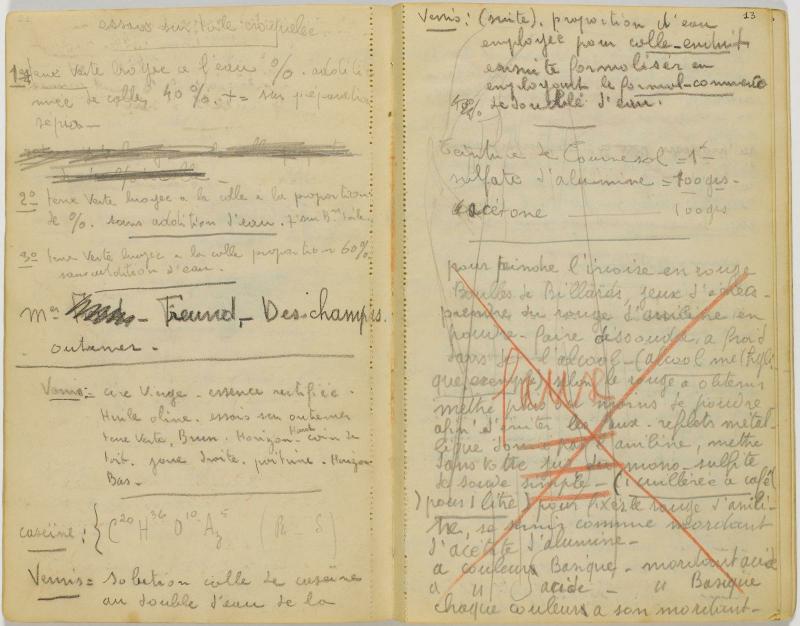 essais sur toile craquelée.
1º terre verte broyée a l'eau %. additi
de colle, 40 %. += sur préparation
2º terre Verte broyee a la colle a la proportion
de %. sans addition d'eau.
3º terre Verte broyee a la colle proportion 60%
sans addition d'eau.
Mes Freund, Deschamps.
outremer.
Vernis = cire Vierge. essence rectifiée.
Huile oline. essais sur outremer
terre Verte. Brun. Horizon Haut coin de
toit. joue droite. poitrine. Horizon
Bas.
caséine : { C20 H36 O10 Az5 (Ph - S)
Vernis = solution colle de caséine
au double d'eau de la
13
Vernis : (suite). proportion d'eau
employee pour colle-enduit
ensuite formoliser en
employant le formol-commerce
40% dedoublé d'eau.
teinture de Tournesol = 1
sulfate d'alumine = 100grs.
acétone 100grs
pour teindre l'ivoire en rouge
Boules de Billards, jeux d'échecs.
prendre du rouge d'aniline en
poudre. faire dissoudre, a froid
dans de l'alcool - (alcool methyli
que exemple) selon le rouge a obtenir
mettre plus ou moins de poudre
afin d'eviter les reflets metal-
lique aniline, mettre
Faux
dans mono-sulfite
de soude simple - (1 cuillerée a café
) pour 1 litre) pour fixer le rouge d'anili-
ne, se servir comme mordant
d'acétate d'alumine -
a couleurs Basique - mordant acide
a " acide - " Basique
chaque couleurs a son mordant -